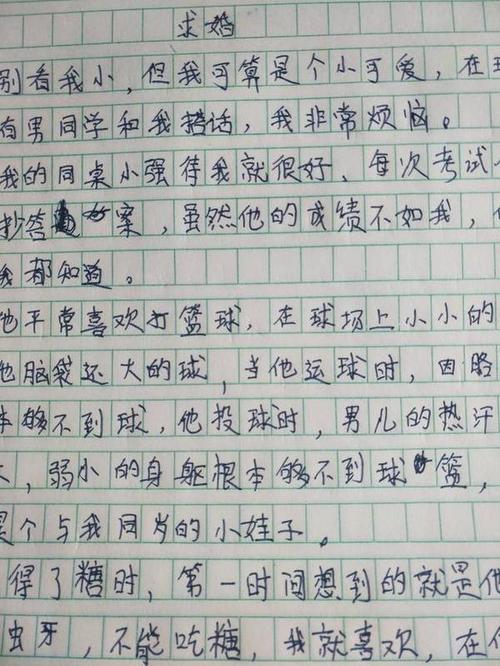 求婚
别看我小，但我可算是个小可爱，在
有男同学和我搭话，我非常烦恼。
我的同桌小强待我就很好，每次考试
抄答案，虽然他的成绩不如我，
我都知道。
他平常喜欢打篮球，在球场上小小的
他脑袋还大的球，当他运球时，因胳
本够不到球，他投球时，男儿的热汗
，弱小的身躯根本够不到球篮，
是个与我同岁的小娃子。
得了糖时，第一时间想到的就是他
虫牙，不能吃糖，我就喜欢，在